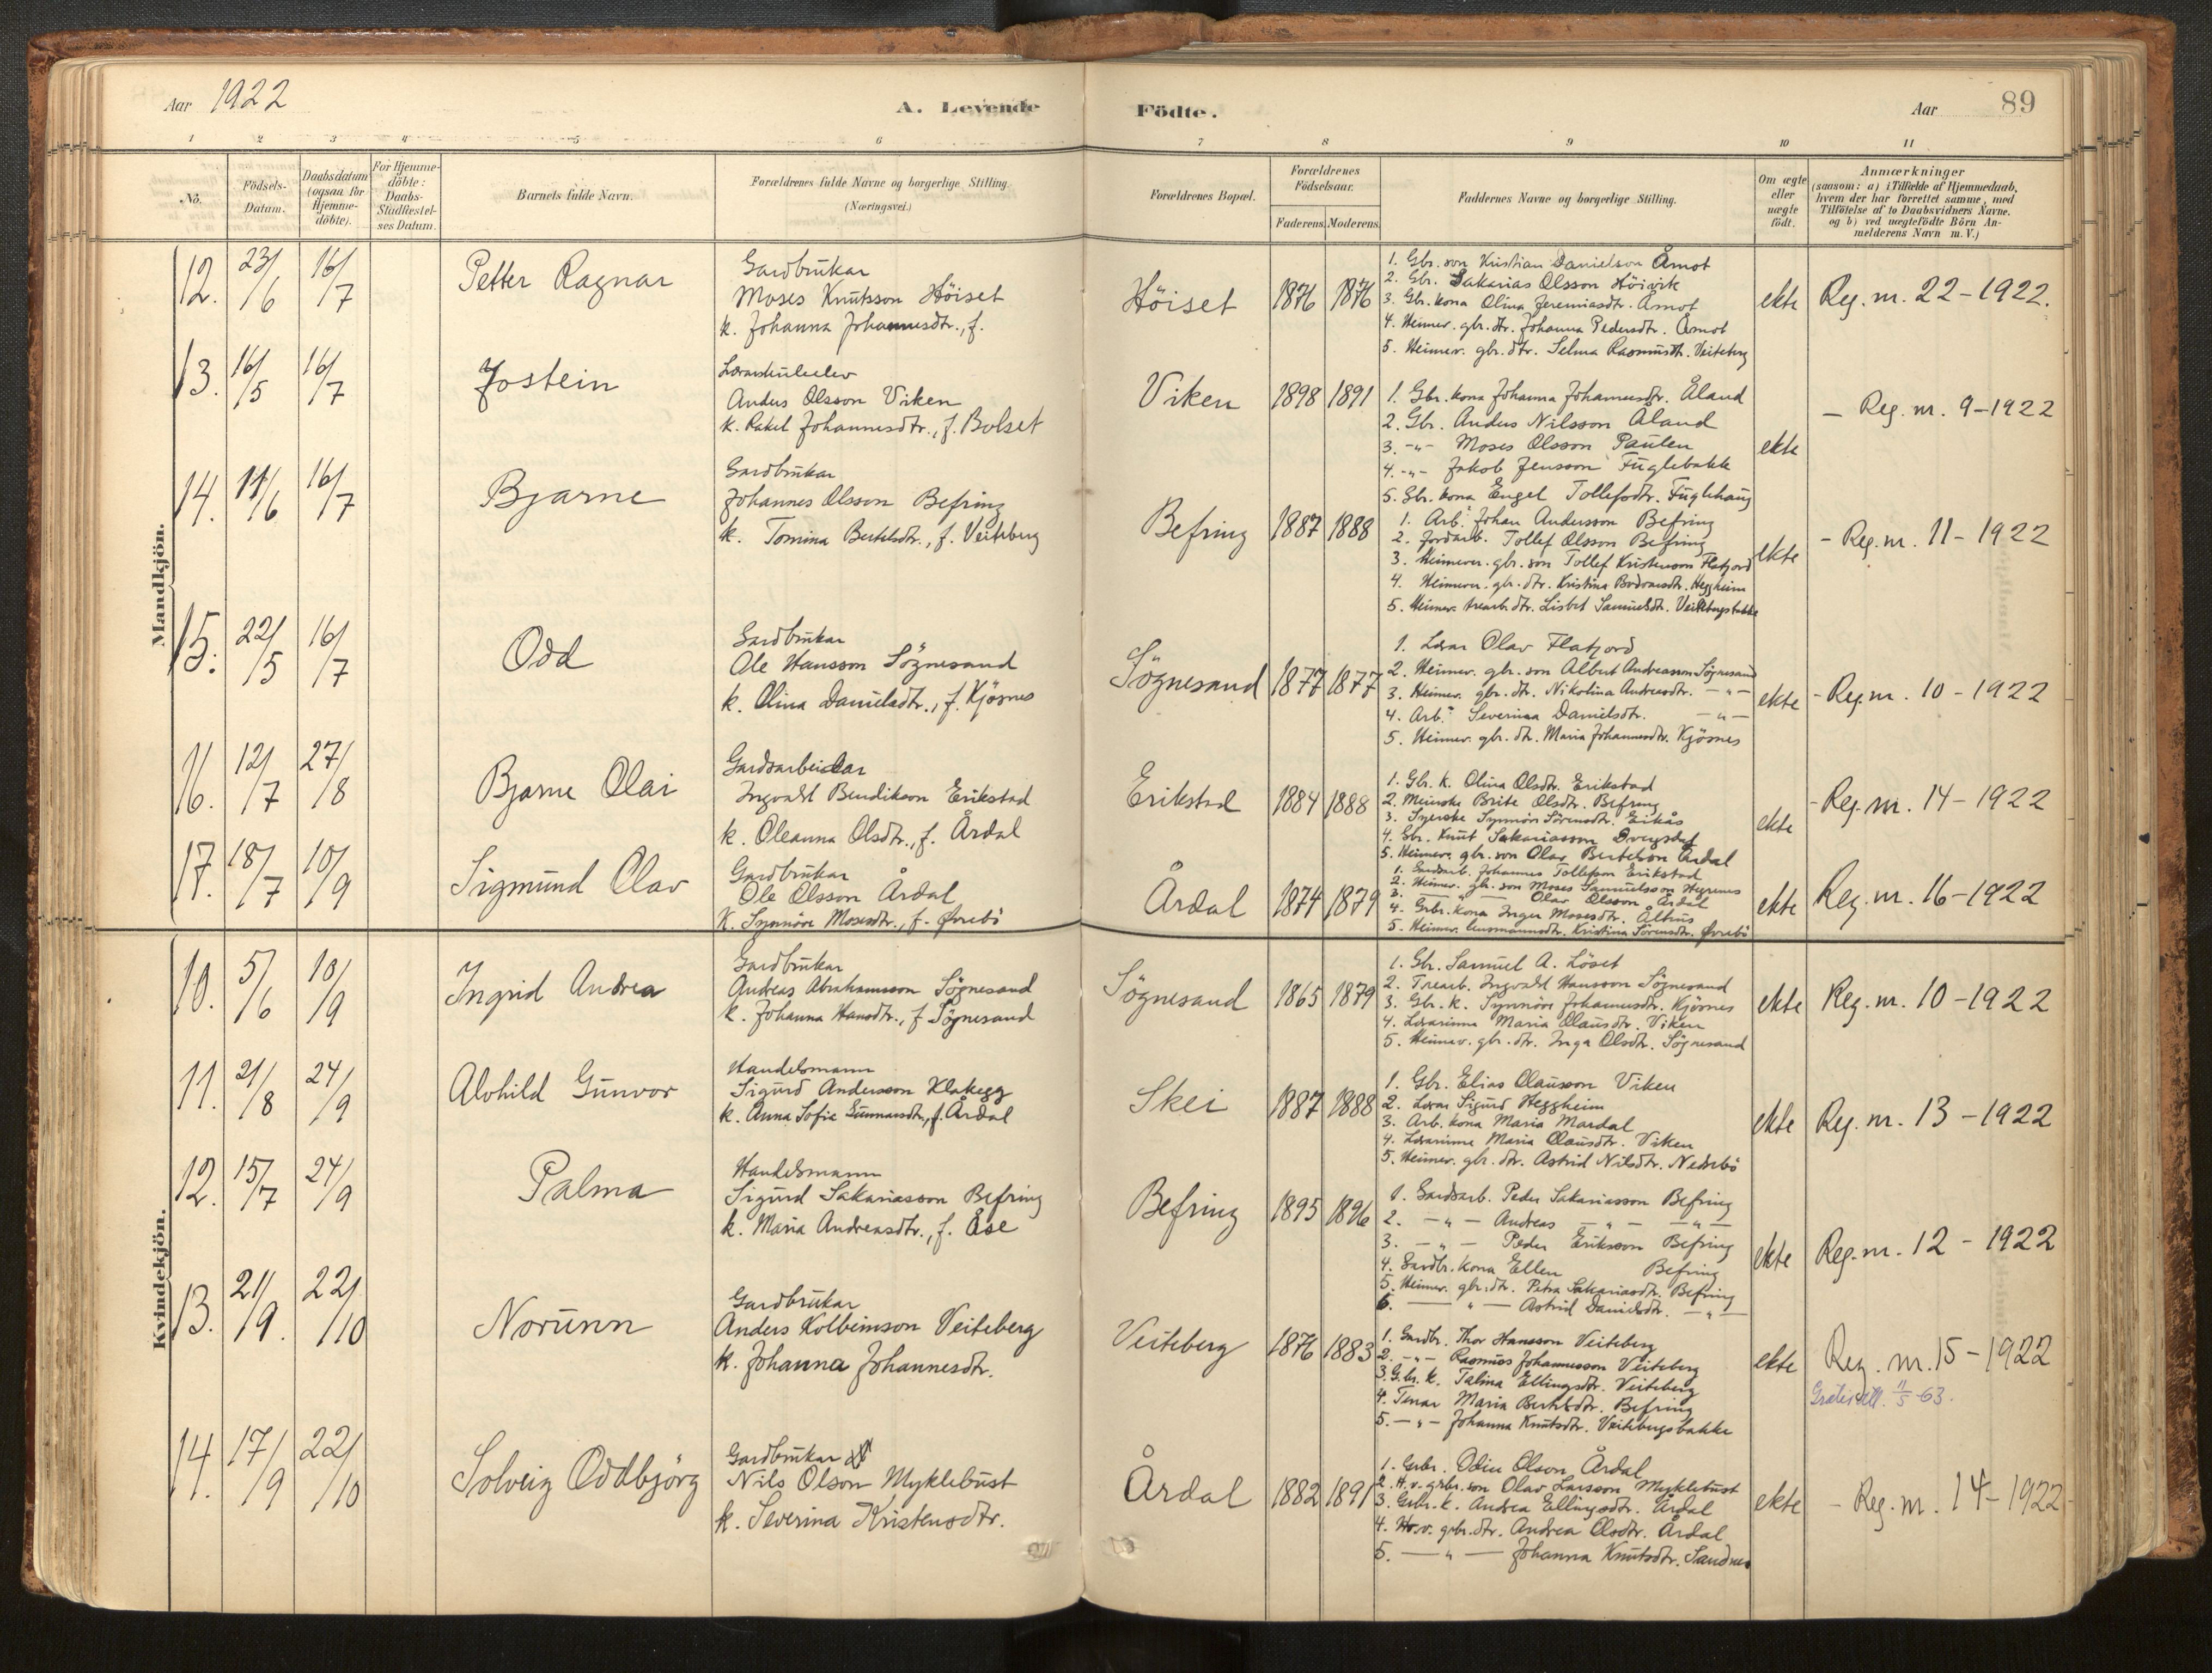 Aar 1922
A. Levende Födte.
Aar 89
1 2 3 4 5 6 7 8 9 10 11
No.
Födsels-Datum.
Daabsdatum (ogsaa for Hjemme-döbte).
For Hjemme-döbte: Daabs-Stadfæstel-ses Datum.
Barnets fulde Navn.
Forældrenes fulde Navne og borgerlige Stilling.
(Næringsvei.)
Forældrenes Bopæl.
Forældrenes Födselsaar.
Faderens. Moderens.
Faddernes Navne og borgerlige Stilling.
Om ægte eller uægte födt.
Anmærkninger
(saasom: a) i Tilfælde af Hjemmedaab,
hvem der har forrettet samme, med
Tilföielse af to Daabsvidners Navne.
og b) ved uægtefödte Börn An-
melderens Navn m. V.)
Mandkjön.
12. 23/6 16/7 Petter Ragnar
Gardbrukar
Moses Knutsson Höiset
k. Johanna Johannesdtr., f.
Höiset 1876 1876
1. Gbr. son Kristian Danielson Åmot
2. Gbr. Sakarias Olsson Höivik
3. Gbr. kona Olina Jeremiasdtr. Åmot
4. Heimev. gbr. dtr. Johanna Pedersdtr. Åmot
5. Heimev. gbr. dtr. Selma Rasmusdtr. Veiteberg
ekte Reg. nr. 22-1922.
13. 16/5 16/7 Jostein
Lærarskuleelev
Anders Olsson Viken
k. Rakel Johannesdtr., f. Bolset
Viken 1898 1891
1. Gbr. kona Johanna Johannesdtr. Åland
2. Gbr. Anders Nilsson Åland
3. -„- Moses Olsson Paulen
4. -„- Jakob Jensson Fuglebakk
5. Gbr. kona Engel Tollefsdtr. Fuglehaug
ekte - Reg. nr. 9-1922
14. 11/6 16/7 Bjarne
Gardbrukar
Johannes Olsson Befring
k. Tomina Bertelsdtr., f. Veiteberg
Befring 1887 1888
1. Arb. Johan Andersson Befring
2. Jordarb. Tollef Olsson Befring
3. Heimever. gbr. son Tollef Kristensson Flatjord
4. Heimever. gbr. dtr. Kristina Bodvarsdtr. Heggheim
5. Heimev. trearb. dtr. Lisbet Samuelsdtr. Veitebergsbakke
ekte - Reg. nr. 11-1922
15. 22/5 16/7 Odd
Gardbrukar
Ole Hansson Sögnesand
k. Olina Danielsdtr., f. Kjösnes
Sögnesand 1877 1877
1. Lærar Olav Flatjord
2. Heimev. gbr. son Albert Andreasson Sögnesand
3. Heimev. gbr. dtr. Nikolina Andreasdtr. -„-
4. Arb. Severina Danielsdtr. -„-
5. Heimev. gbr. dtr. Maria Johannesdtr. Kjösnes
ekte - Reg. nr. 10-1922
16. 12/7 27/8 Bjarne Olai
Gardsarbeidar
Ingvald Bendikson Erikstad
k. Oleanna Olsdtr., f. Årdal
Erikstad 1884 1888
1. Gbr. k. Olina Olsdtr. Erikstad
2. Meierske Brite Olsdtr. Befring
3. Syerske Synnöve Sörensdtr. Eikås
4. Gbr. Knut Sakariasson Dvergsdal
5. Heimev. gbr. son Olav Bertelson Årdal
ekte - Reg. nr. 14-1922
17. 18/7 10/9 Sigmund Olav
Gardbrukar
Ole Olsson Årdal
K. Synnöve Mosesdtr., f. Øvrebö
Årdal 1874 1879
1. Gardsarb. Johannes Tollefson Erikstad
2. Heimev. gbr. son Moses Samuelsson
3. -„- Olav Olsson Årdal
4. Gbr. kona Inger Mosesdtr.
5. Heimev. lensmannsdtr. Kristina Sörensdtr. Øvrebö
ekte Reg. nr. 16-1922
Kvindekjön.
10. 5/6 10/9 Ingrid Andrea
Gardbrukar
Andreas Abrahamsson Sögnesand
k. Johanna Hansdtr., f. Sögnesand
Sögnesand 1865 1879
1. Gbr. Samuel A. Löset
2. Trearb. Ingvald Hansson Sögnesand
3. Gbr. k. Synnöve Johannesdtr. Kjösnes
4. Lærarinne Maria Olausdtr. Viken
5. Heimev. gbr. dtr. Inga Olsdtr. Sögnesand
ekte Reg. nr. 10-1922
11. 21/8 24/9 Alvhild Gunvor
Handelsmann
Sigurd Andersson Klakegg
k. Anna Sofie Gunnarsdtr., f. Årdal
Skei 1887 1888
1. Gbr. Elias Olausson Viken
2. Lærar Sigurd Heggheim
3. Arb. kona Maria Mardal
4. Lærarinne Maria Olausdtr. Viken
5. Heimev. gbr. dtr. Astrid Nilsdtr. Nedrebö
ekte Reg. nr. 13-1922
12. 15/7 24/9 Palma
Handelsmann
Sigurd Sakariasson Befring
k. Maria Andreasdtr., f. Åse
Befring 1895 1896
1. Gardsarb. Peder Sakariasson Befring
2. -„- Andreas -„- -„-
3. -„- Peder Eriksson Befring
4. Gardbr. kona Ellen Befring
5. Heimev. gbr. dtr. Petra Sakariasdtr. Befring
6. -„- Astrid Danielsdtr. -„-
ekte Reg. nr. 12-1922
13. 21/9. 22/10 Norunn
Gardbrukar
Anders Kolbeinson Veiteberg
k. Johanna Johannesdtr.
Veiteberg 1876 1883
1. Gardbr. Thor Hansson Veiteberg
2. -„- Rasmus Johannesson Veiteberg
3. G.br. k. Talina Ellingsdtr. Veiteberg
4. Tenar Maria Bertelsdtr. Befring
5. -„- Johanna Knutsdtr. Veitebergsbakke
ekte Reg. nr. 15-1922
Gratis att. 11/5-63.
14. 17/9 22/10 Solveig Oddbjörg
Gardbrukar
Nils Olson Myklebust
k. Severina Kristensdtr.
Årdal 1882 1891
1. Grbr. Odin Olson Årdal
2. H.v. grbr. son Olav Larsson Myklebust
3. Grbr. k. Andrea Ellingsdtr. Årdal
4. H.v. grbr. dtr. Andrea Olsdtr. Årdal
5. -„- Johanna Knutsdtr. Sandnes
ekte - Reg. nr. 14-1922